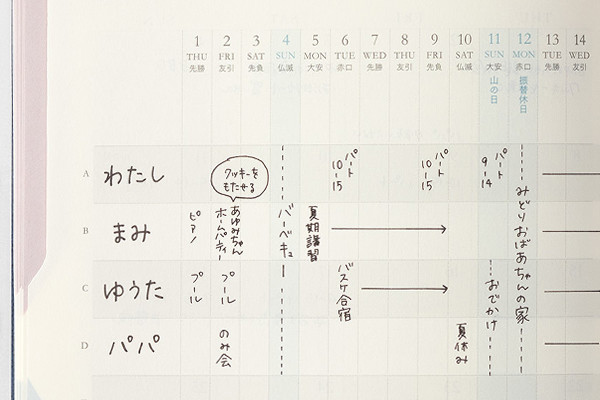 1 2 3 4 5 6 7 8 9 10 11 12 13 14
THU FRI SAT SUN MON TUE WED THU FRI SAT SUN MON TUE WED
先勝 友引 先負 仏滅 大安 赤口 先勝 友引 先負 仏滅 大安 赤口 先勝 友引
山の日
振替休日
A わたし
クッキーを
もたせる
パート
10-15
パート
10-15
パート
9-14
B まみ
ピアノ
あゆみちゃん
ホームパーティー
バーベキュー
夏期講習
みどりおばあちゃんの家
C ゆうた
プール
プール
バスケ合宿
おでかけ
D パパ
のみ会
夏休み